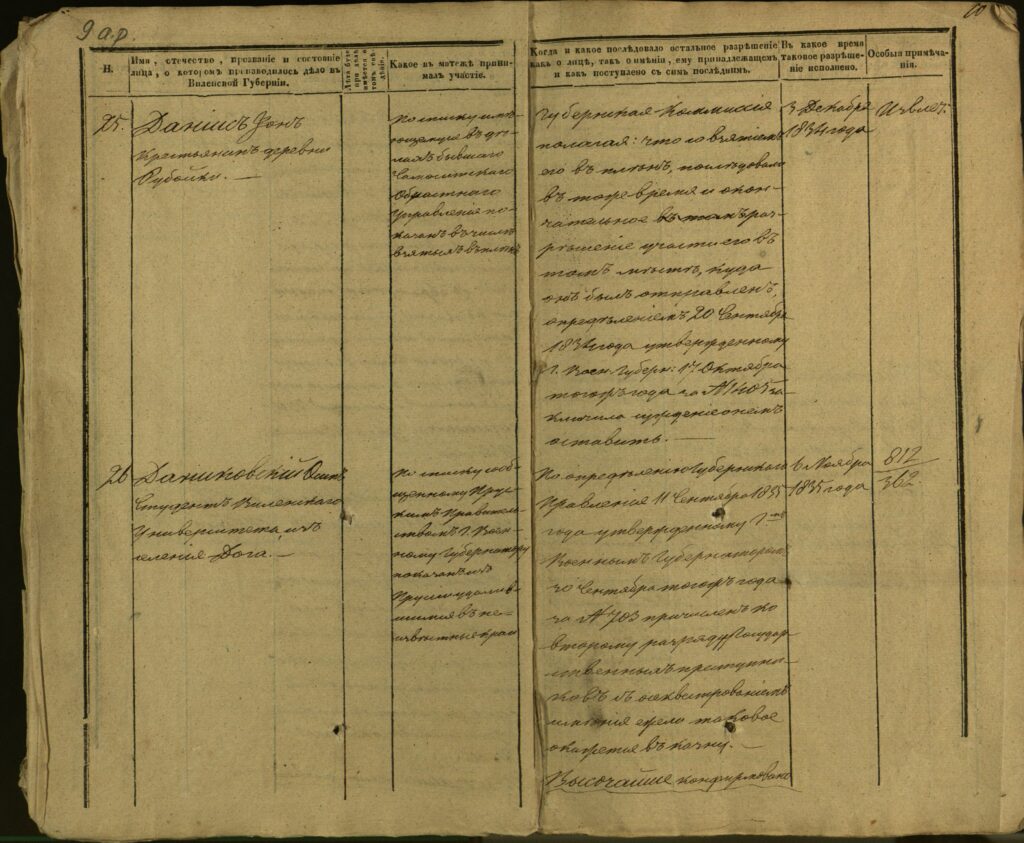 9 а.р.
60
Н.
Имя, отечество, прозваніе и состояніе
лица, о которомъ производилось дѣло въ
Виленской Губерніи.
Какое въ мятежѣ прини-
малъ участіе.
Когда и какое послѣдовало остальное разрѣшеніе
какъ о лицѣ, такъ о имѣніи, ему принадлежащемъ
и какъ поступлено съ симъ послѣднимъ.
Въ какое время
таковое разрѣше-
ніе исполнено.
Особыя примѣча-
нія.
25.
Данисъ Фонъ
Крестьянинъ деревни
Рубойки. —
По списку имѣ-
ющемуся въ дѣ-
лахъ бывшаго
Областнаго
Управленія по-
казанъ въ числѣ
взятыхъ въ плѣнъ
Губернская Коммисія
полагая: что со взятіемъ
его въ плѣнъ, послѣдовало
въ тоже время и окон-
чательное раз-
рѣшеніе участи его въ
томъ мѣстѣ, куда
онъ былъ отправленъ,
опредѣленіемъ 20 Сентября
1834 года утвержденному
Г. Воен. Губерн: 17 Октября
тогожъ года за № 1405 за-
ключила сужденіе о немъ
оставить. —
3 Декабря
1834 года
26
Даниковскій
Студентъ Виленскаго
Университета, изъ
селенія Дога. —
По списку сооб-
щенному Прус-
скимъ Правитель-
ствомъ Г. Воен-
ному Губернатору
показанъ изъ
Пруссіи удалив-
шимся въ не-
извѣстные края
По опредѣленію Губернскаго
Правленія 11 Сентября 1835
года утвержденному Г-мъ
Военнымъ Губернаторомъ
30 Сентября тогожъ года
за № 703 причисленъ ко
второму разряду Государ-
ственныхъ преступни-
ковъ съ секвестрованіемъ
имѣнія ежели таковое
окажется въ казну. —
Высочайше конфирмовано
6 Ноября
1835 года
812
362